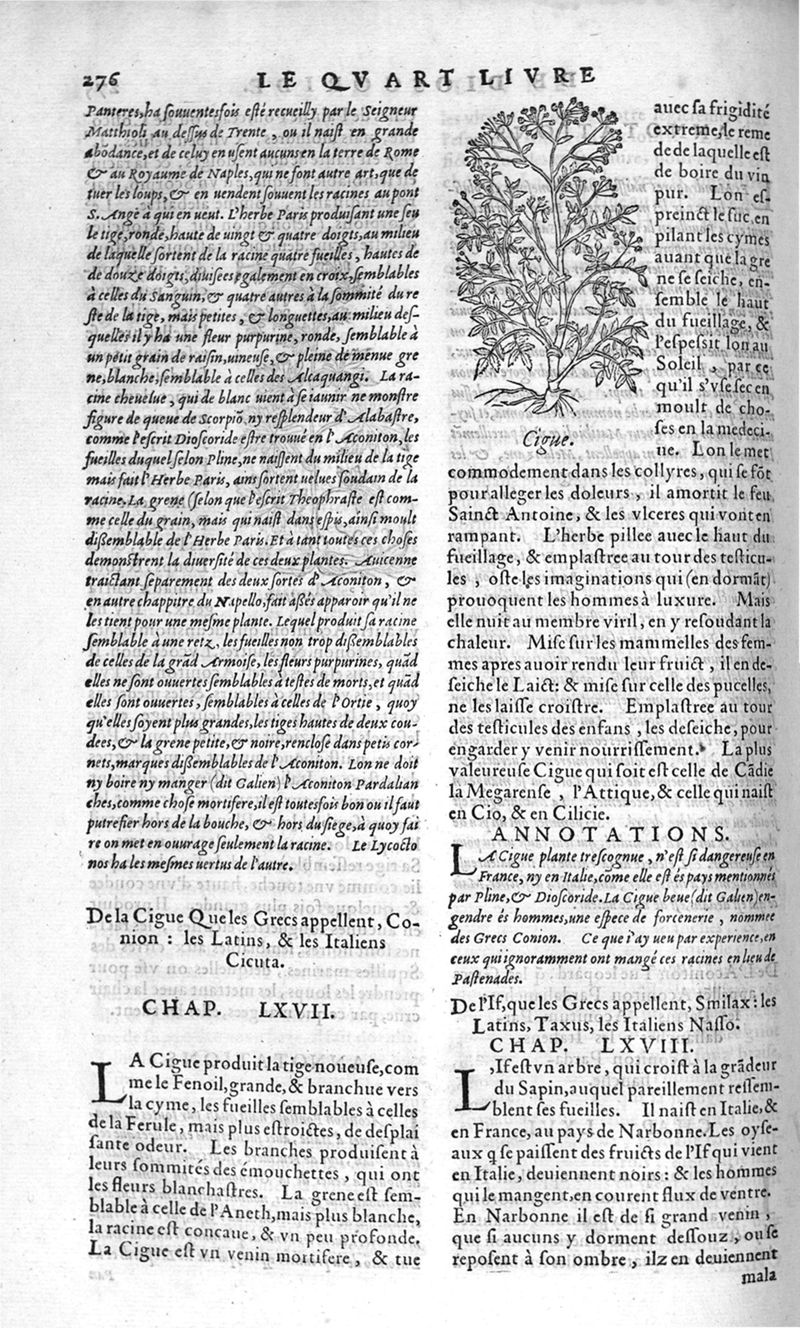 276 LE QVART LIVRE
Panteres, ha souuentesfois esté recueilly par le Seigneur
Matthioli au dessus de Trente, ou il naist en grande
abōdance, et de celuy en usent aucuns en la terre de Rome
& au Royaume de Naples, qui ne font autre art, que de
tuer les loups, & en uendent souuent les racines au pont
S. Ange à qui en ueut. L'herbe Paris produisant une seu
le tige, ronde, haute de uingt & quatre doigts, au milieu
de laquelle sortent de la racine quatre fueilles, hautes de
de douze doigts, diuisees egalement en croix, semblables
à celles du Sanguin, & quatre autres à la sommité du re
ste de la tige, mais petites, & longuettes, au milieu des-
quelles il y ha une fleur purpurine, ronde, semblable à
un petit grain de raisin, uineuse, & pleine de menue gre
ne, blanche, semblable à celles des Alcaquangi. La ra-
cine cheuelue, qui de blanc uient à se iaunir ne monstre
figure de queue de Scorpiō, ny resplendeur d'Alabastre,
comme l'escrit Dioscoride estre trouué en l'Aconiton, les
fueilles duquel selon Pline, ne naissent du milieu de la tige
mais fait l'Herbe Paris, ains sortent uelues soudain de la
racine. La grene (selon que l'escrit Theophraste est com-
me celle du grain, mais qui naist dans espis, ainsi moult
dissemblable de l'Herbe Paris. Et à tant toutes ces choses
demonstrent la diuersité de ces deux plantes. Auicenne
traictant separement des deux sortes d'Aconiton, &
en autre chappitre du Napello, fait assés apparoir qu'il ne
les tient pour une mesme plante. Lequel produit sa racine
semblable à une retz, les fueilles non trop dissemblables
de celles de la grād Armoise, les fleurs purpurines, quād
elles ne sont ouuertes semblables à testes de morts, et quād
elles sont ouuertes, semblables à celles de l'Ortie, quoy
qu'elles soyent plus grandes, les tiges hautes de deux cou-
dees, & la grene petite, & noire, renclose dans petis cor-
nets, marques dissemblables de l'Aconiton. Lon ne doit
ny boire ny manger (dit Galien) l'Aconiton Pardalian
ches, comme chose mortifere, il est toutesfois bon ou il faut
putrefier hors de la bouche, & hors du siege, à quoy fai
re on met en ouurage seulement la racine. Le Lycocto
nos ha les mesmes uertus de l'autre.
De la Cigue Que les Grecs appellent, Co-
nion : les Latins, & les Italiens
Cicuta.
CHAP. LXVII.
LA Cigue produit la tige noueuse, com
me le Fenoil, grande, & branchue vers
la cyme, les fueilles semblables à celles
de la Ferule, mais plus estroictes, de desplai
sante odeur. Les branches produisent à
leurs sommités des émouchettes, qui ont
les fleurs blanchastres. La grene est sem-
blable à celle de l'Aneth, mais plus blanche,
la racine est concaue, & vn peu profonde.
La Cigue est vn venin mortifere, & tue
Cigue.
auec sa frigidité
extreme, le reme
de de laquelle est
de boire du vin
pur. Lon es-
preinct le suc, en
pilant les cymes
auant que la gre
ne se seiche, en-
semble le haut
du fueillage, &
l'espessit lon au
Soleil, par ce
qu'il s'vse sec en
moult de cho-
ses en la medeci-
ne. Lon le met
commodement dans les collyres, qui se fōt
pour alleger les doleurs, il amortit le feu
Sainct Antoine, & les vlceres qui vont en
rampant. L'herbe pillee auec le haut du
fueillage, & emplastree au tour des testicu-
les, oste les imaginations qui (en dormāt)
prouoquent les hommes à luxure. Mais
elle nuit au membre viril, en y resoudant la
chaleur. Mise sur les mammelles des fem-
mes apres auoir rendu leur fruict, il en de-
seiche le Laict: & mise sur celle des pucelles,
ne les laisse croistre. Emplastree au tour
des testicules des enfans, les deseiche, pour
engarder y venir nourrissement. La plus
valeureuse Cigue qui soit est celle de Cādie
la Megarense, l'Attique, & celle qui naist
en Cio, & en Cilicie.
ANNOTATIONS.
LA Cigue plante trescognue, n'est si dangereuse en
France, ny en Italie, cōme elle est és pays mentionnés
par Pline, & Dioscoride. La Cigue beue (dit Galien) en-
gendre és hommes, une espece de forcenerie, nommee
des Grecs Conion. Ce que i'ay ueu par experience, en
ceux qui ignoramment ont mangé ces racines en lieu de
Pastenades.
De l'If, que les Grecs appellent, Smilax : les
Latins, Taxus, les Italiens Nasso.
CHAP. LXVIII.
L'If est vn arbre, qui croist à la grādeur
du Sapin, auquel pareillement ressem-
blent ses fueilles. Il naist en Italie, &
en France, au pays de Narbonne. Les oyse-
aux q se paissent des fruicts de l'If qui vient
en Italie, deuiennent noirs : & les hommes
qui le mangent, en courent flux de ventre.
En Narbonne il est de si grand venin,
que si aucuns y dorment dessouz, ou se
reposent à son ombre, ilz en deuiennent
mala